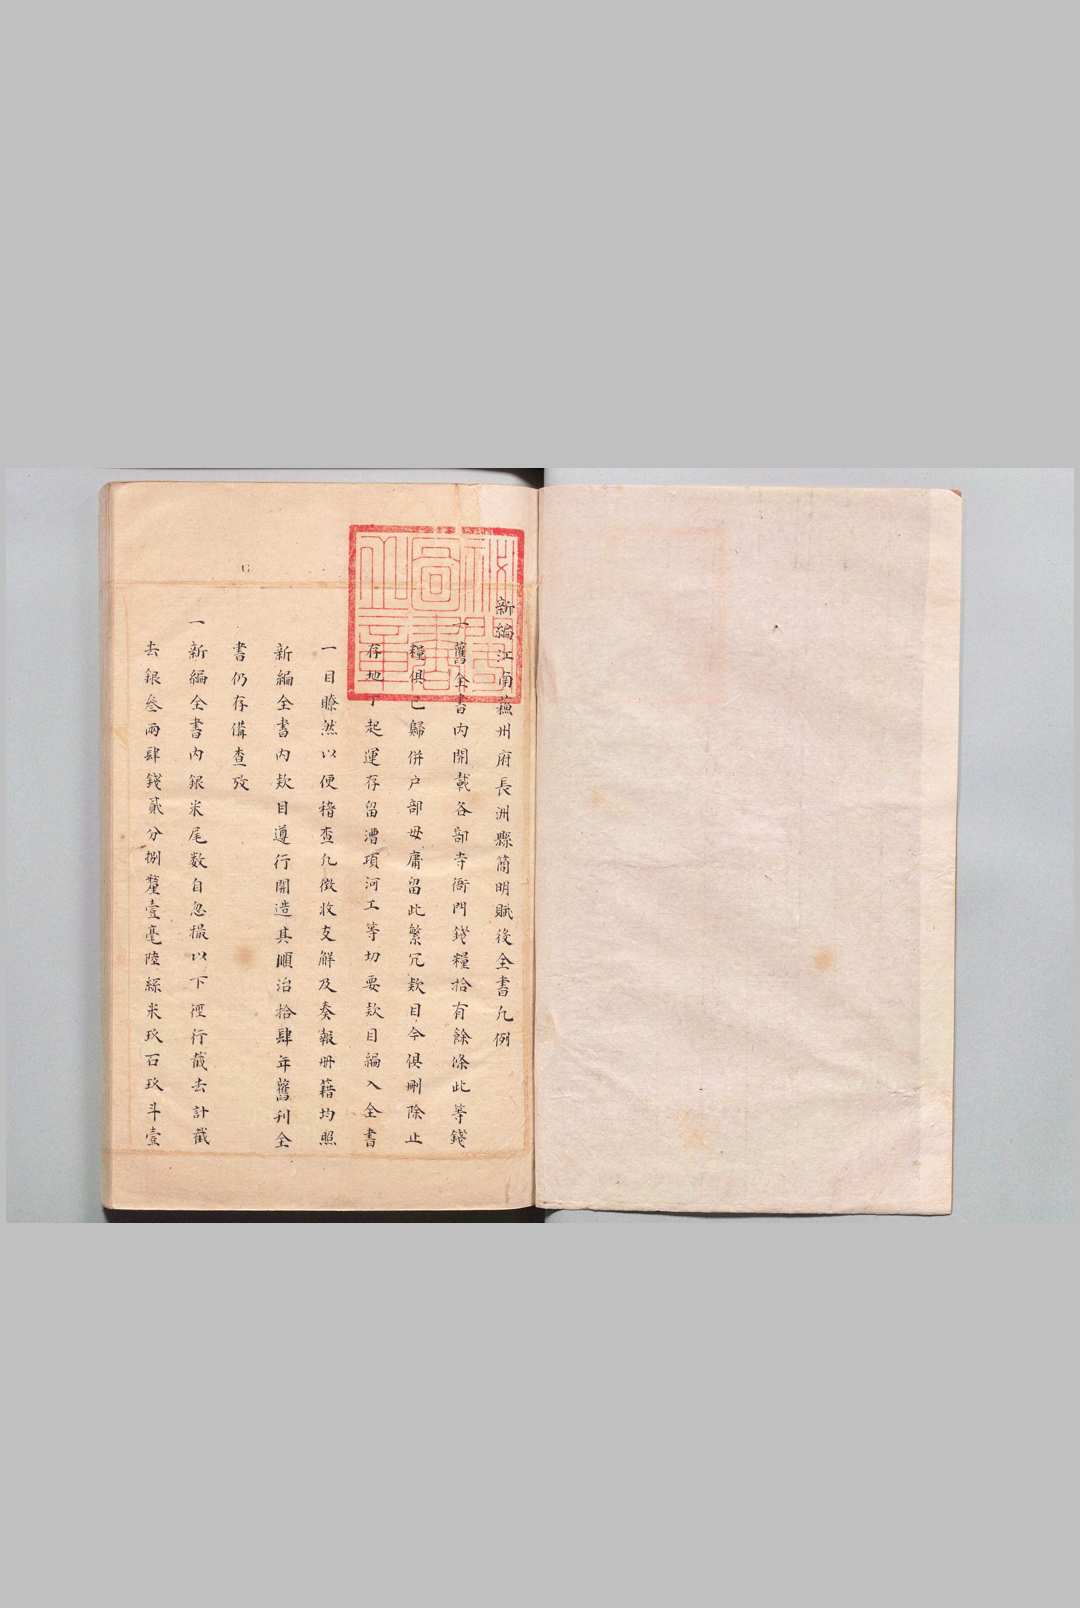 新編江南蘇州府長洲縣簡明賦後全書凡例
一舊全書內開載各部寺衙門錢糧拾有餘條此等錢
糧俱已歸併户部毋庸留此繁冗欵目今俱刪除止
存地丁起運存留漕項河工等切要欵目編入全書
一目瞭然以便稽查凡徵收支解及奏報冊籍均照
新編全書內欵目遵行開造其順治拾肆年舊刊全
書仍存備查攷
一新編全書內銀米尾数自忽撮以下徑行截去計截
去銀叄兩肆錢貳分捌釐壹毫陸絲米玖石玖斗壹